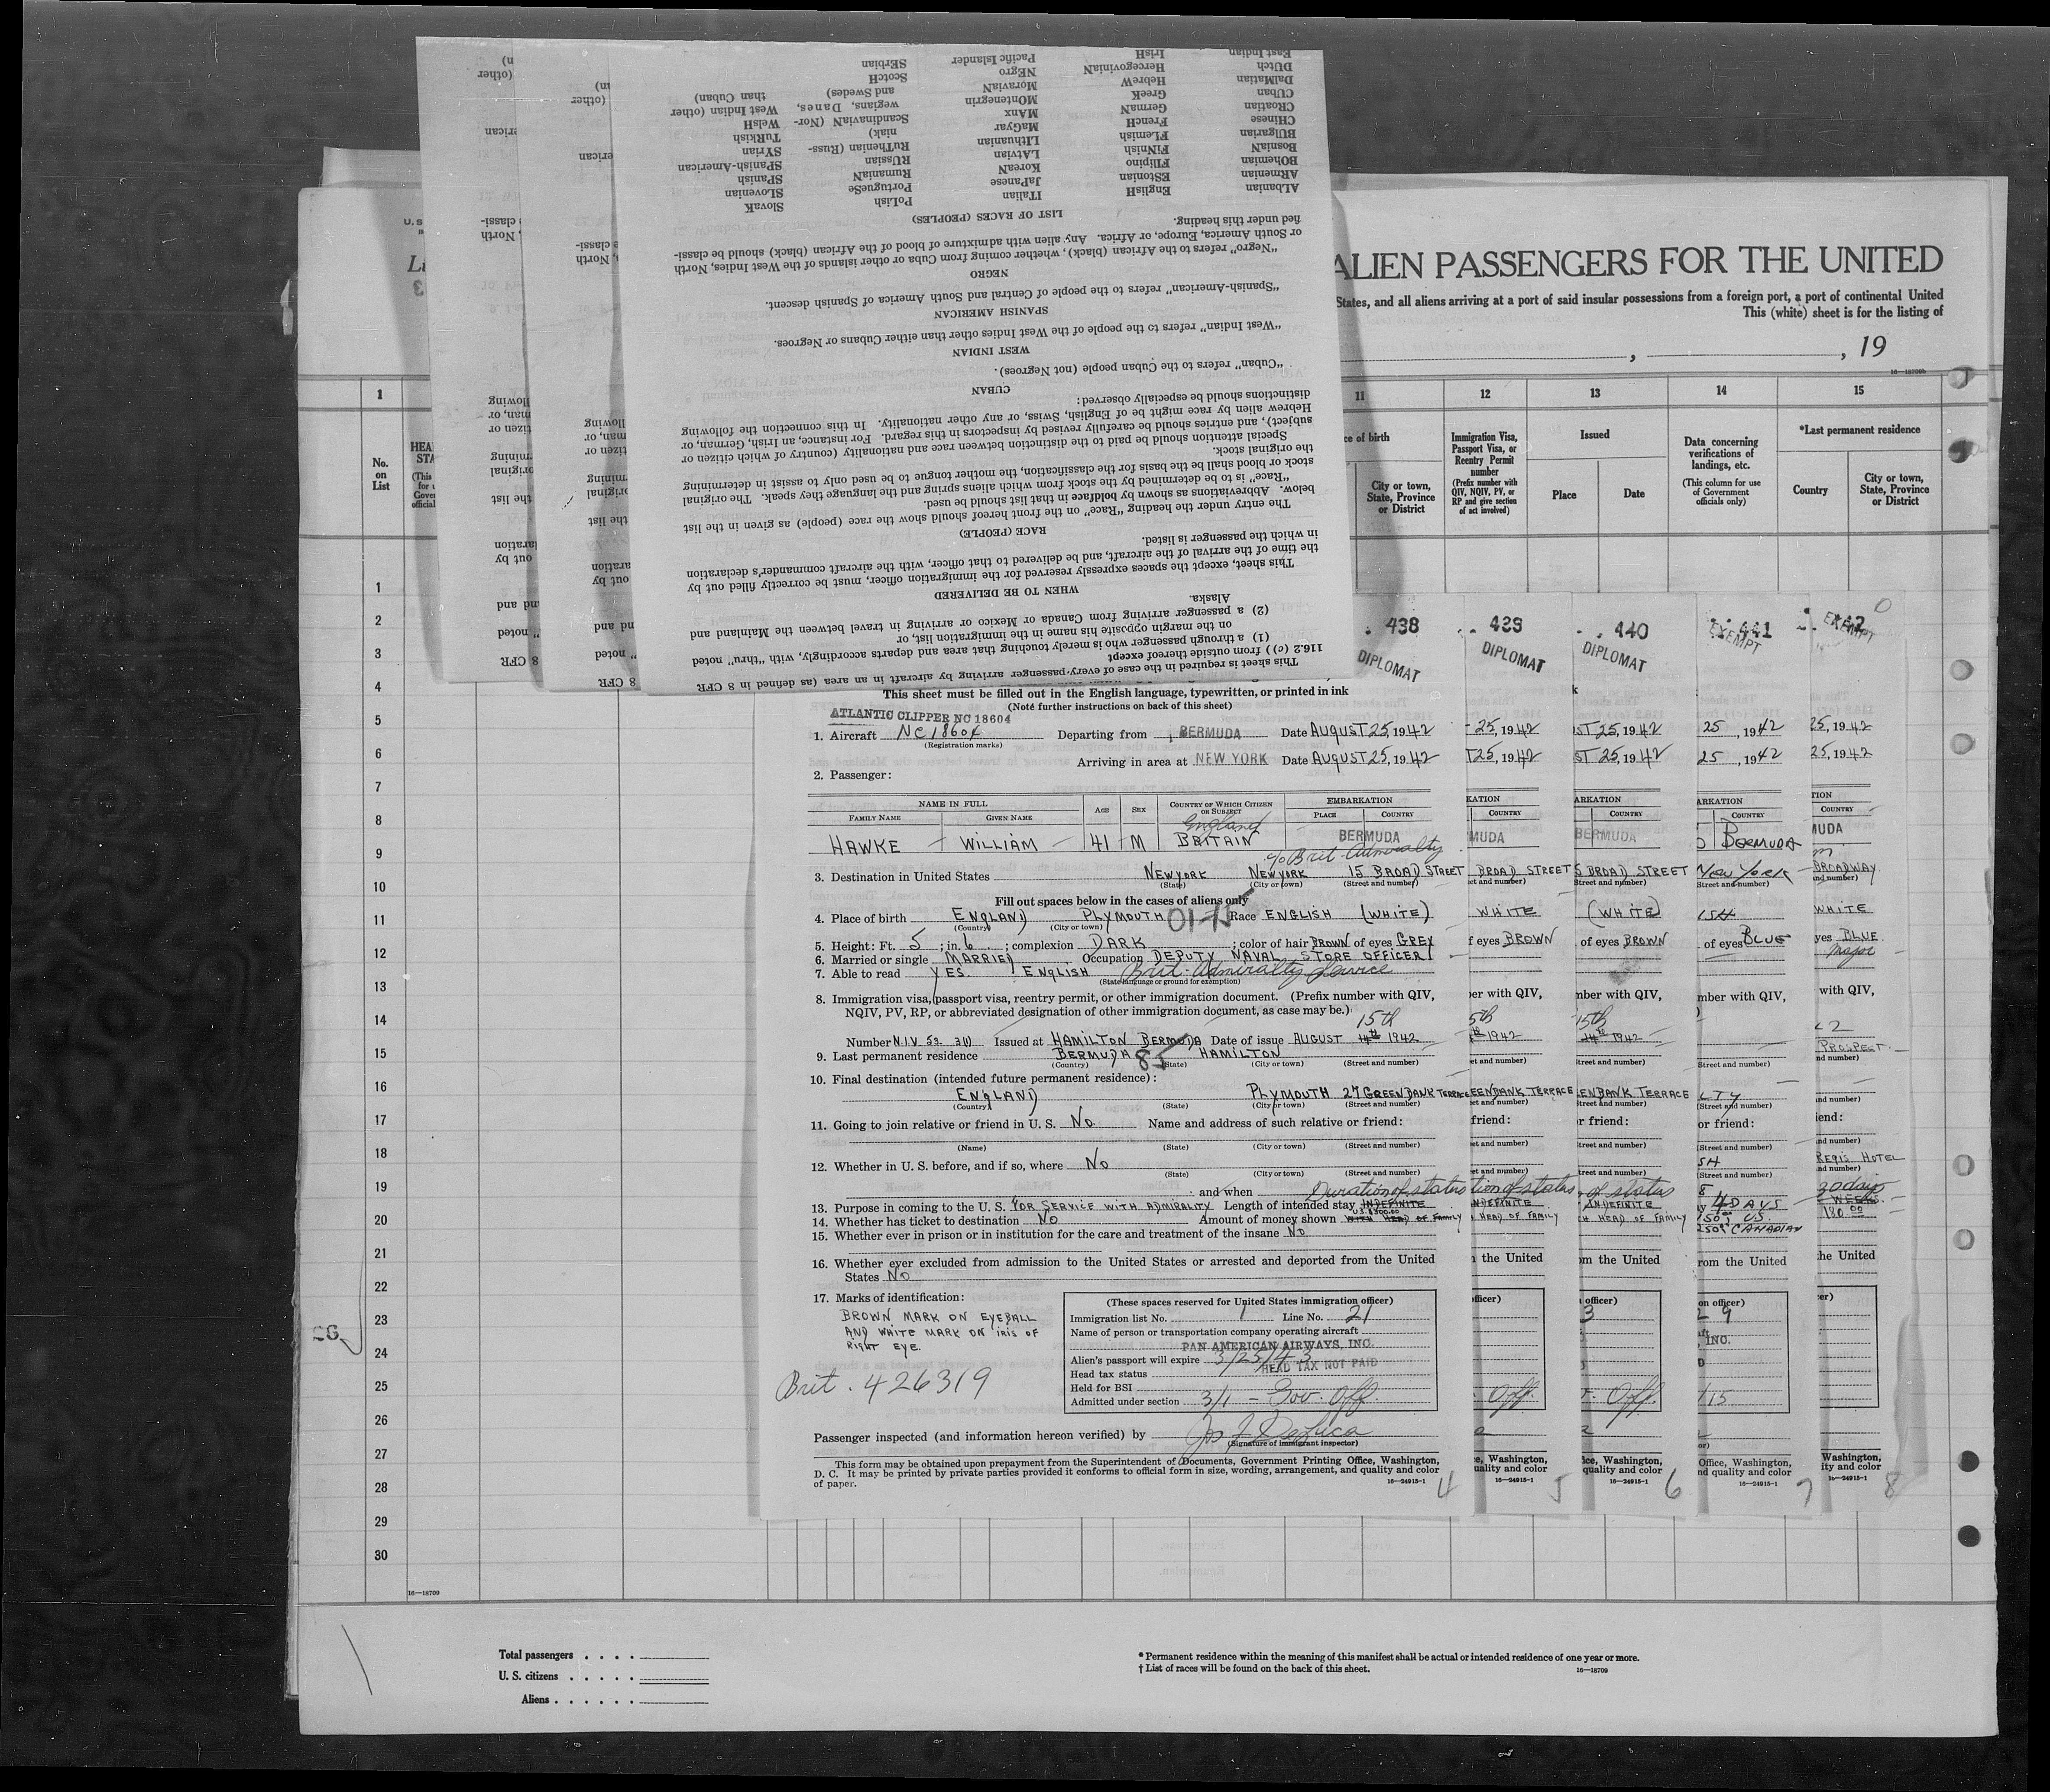 ALIEN PASSENGERS FOR THE UNITED
States, and all aliens arriving at a port of said insular possessions from a foreign port, a port of continental United
This (white) sheet is for the listing of
, 19
16—18709b
1 11 12 13 14 15
No. on List
Immigration Visa, Passport Visa, or Reentry Permit number
(Prefix number with QIV, NQIV, PV, or RP and give section of act involved)
Issued
Place Date
Data concerning verifications of landings, etc.
(This column for use of Government officials only)
*Last permanent residence
City or town, State, Province or District
Country
City or town, State, Province or District
This sheet is required in the case of every passenger arriving by aircraft in an area (as defined in 8 CFR
116.2 (c)) from outside thereof except
(1) a through passenger who is merely touching that area and departs accordingly, with "thru" noted
on the margin opposite his name in the immigration list, or
(2) a passenger arriving from Canada or Mexico or arriving in travel between the Mainland and
Alaska.
WHEN TO BE DELIVERED
This sheet, except the spaces expressly reserved for the immigration officer, must be correctly filled out by
the time of the arrival of the aircraft, and be delivered to that officer, with the aircraft commander's declaration
in which the passenger is listed.
RACE (PEOPLE)
The entry under the heading "Race" on the front hereof should show the race (people) as given in the list
below. Abbreviations as shown by boldface in that list should be used.
"Race" is to be determined by the stock from which aliens spring and the language they speak. The original
stock or blood shall be the basis for the classification, the mother tongue to be used only to assist in determining
the original stock.
Special attention should be paid to the distinction between race and nationality (country of which citizen or
subject), and entries should be carefully revised by inspectors in this regard. For instance, an Irish, German, or
Hebrew alien by race might be of English, Swiss, or any other nationality. In this connection the following
distinctions should be especially observed:
CUBAN
"Cuban" refers to the Cuban people (not Negroes).
WEST INDIAN
"West Indian" refers to the people of the West Indies other than either Cubans or Negroes.
SPANISH AMERICAN
"Spanish-American" refers to the people of Central and South America of Spanish descent.
NEGRO
"Negro" refers to the African (black), whether coming from Cuba or other islands of the West Indies, North
or South America, Europe, or Africa. Any alien with admixture of blood of the African (black) should be classi-
fied under this heading.
LIST OF RACES (PEOPLES)
ALbanian EnglisH ITalian PoLish SlovaK
ARmenian EStonian JaPanese PortugueSe SLovenian
BOhemian FIlipino KoreaN RumaniaN SPanish
BosniaN FiNnish LAtvian RUssian SPanish-American
BUlgarian FLemish LIthuanian RuThenian (Russ- SYrian
CHinese FrencH MaGyar niak) TuRkish
CRoatian GermaN MAnx ScandinaviaN (Nor- WelsH
CUban GreeK MOntenegrin wegians, Danes, West Indian (other
DalMatian HebreW MoraviaN and Swedes) than Cuban)
DUtch HercegoviniaN NEgro ScotcH
East Indian IrisH Pacific Islander SErbian
438 439 440 441 442
DIPLOMAT DIPLOMAT DIPLOMAT EXEMPT EXEMPT
This sheet must be filled out in the English language, typewritten, or printed in ink
(Note further instructions on back of this sheet)
ATLANTIC CLIPPER NC 18604
1. Aircraft NC18604 Departing from BERMUDA Date AUGUST 25, 1942
(Registration marks)
Arriving in area at NEW YORK Date AUGUST 25, 1942
2. Passenger:
NAME IN FULL AGE SEX COUNTRY OF WHICH CITIZEN OR SUBJECT EMBARKATION
FAMILY NAME GIVEN NAME PLACE COUNTRY
England
HAWKE WILLIAM 41 M BRITAIN BERMUDA
c/o Brit. Admiralty
3. Destination in United States NEWYORK NEWYORK 15 BROAD STREET
(State) (City or town) (Street and number)
Fill out spaces below in the cases of aliens only
4. Place of birth ENGLAND PLYMOUTH Race ENGLISH (WHITE)
(Country) (City or town)
5. Height: Ft. 5; in. 6; complexion DARK; color of hair BROWN of eyes GREY
6. Married or single MARRIED Occupation DEPUTY NAVAL STORE OFFICER
7. Able to read YES. ENGLISH Brit. Admiralty Service
(State language or ground for exemption)
8. Immigration visa, passport visa, reentry permit, or other immigration document. (Prefix number with QIV,
NQIV, PV, RP, or abbreviated designation of other immigration document, as case may be.)
15th
Number N.I.V 53. 3(1) Issued at HAMILTON BERMUDA Date of issue AUGUST 14th 1942
9. Last permanent residence BERMUDA 85 HAMILTON
(Country) (State) (City or town) (Street and number)
10. Final destination (intended future permanent residence):
ENGLAND PLYMOUTH 27 GREENBANK TERRACE
(Country) (State) (City or town) (Street and number)
11. Going to join relative or friend in U. S. No Name and address of such relative or friend:
(Name) (State) (City or town) (Street and number)
12. Whether in U. S. before, and if so, where No
(State) (City or town) (Street and number)
and when Duration of status
13. Purpose in coming to the U. S. FOR SERVICE WITH ADMIRALTY Length of intended stay INDEFINITE
14. Whether has ticket to destination NO Amount of money shown WITH HEAD OF FAMILY
15. Whether ever in prison or in institution for the care and treatment of the insane No
16. Whether ever excluded from admission to the United States or arrested and deported from the United
States No
17. Marks of identification:
BROWN MARK ON EYEBALL
AND WHITE MARK ON IRIS OF
RIGHT EYE.
Brit. 426319
(These spaces reserved for United States immigration officer)
Immigration list No. 1 Line No. 21
Name of person or transportation company operating aircraft
PAN AMERICAN AIRWAYS, INC.
Alien's passport will expire 3/25/43
Head tax status HEAD TAX NOT PAID
Held for BSI
Admitted under section 3/1 - Gov. Off.
Passenger inspected (and information hereon verified) by
(Signature of immigrant inspector)
This form may be obtained upon prepayment from the Superintendent of Documents, Government Printing Office, Washington,
D. C. It may be printed by private parties provided it conforms to official form in size, wording, arrangement, and quality and color
of paper. 16—24915-1
4 5 6 7 8
1
2
3
4
5
6
7
8
9
10
11
12
13
14
15
16
17
18
19
20
21
22
23
24
25
26
27
28
29
30
16—18709
Total passengers . . . .
U. S. citizens . . . . .
Aliens . . . . . .
* Permanent residence within the meaning of this manifest shall be actual or intended residence of one year or more.
† List of races will be found on the back of this sheet. 16—18709